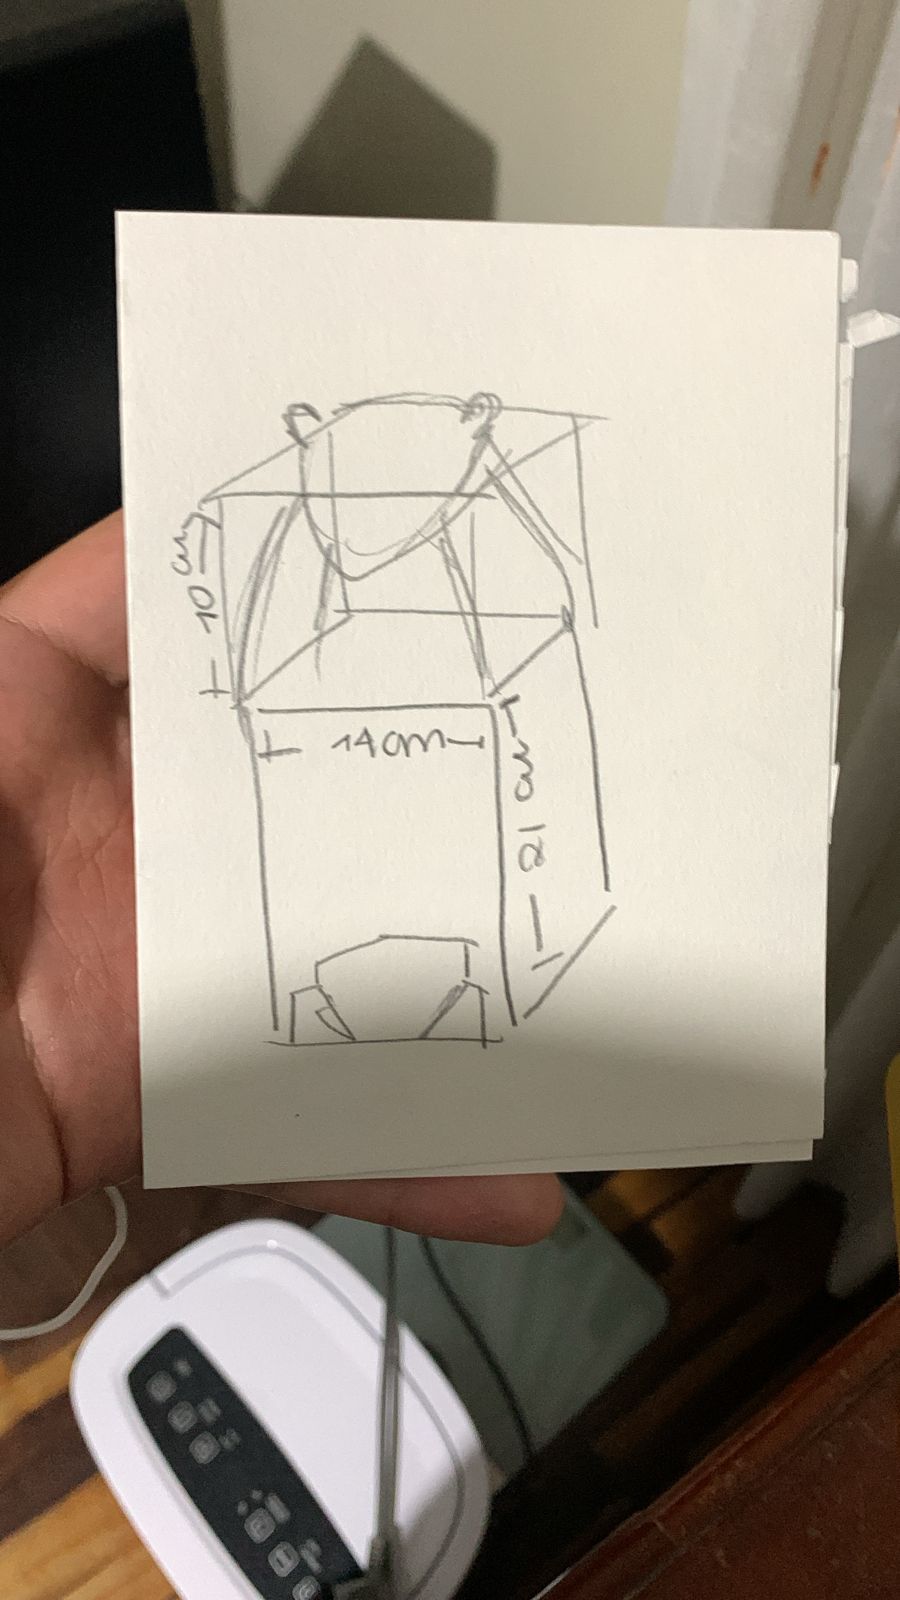 10 cm
14 cm
21 cm